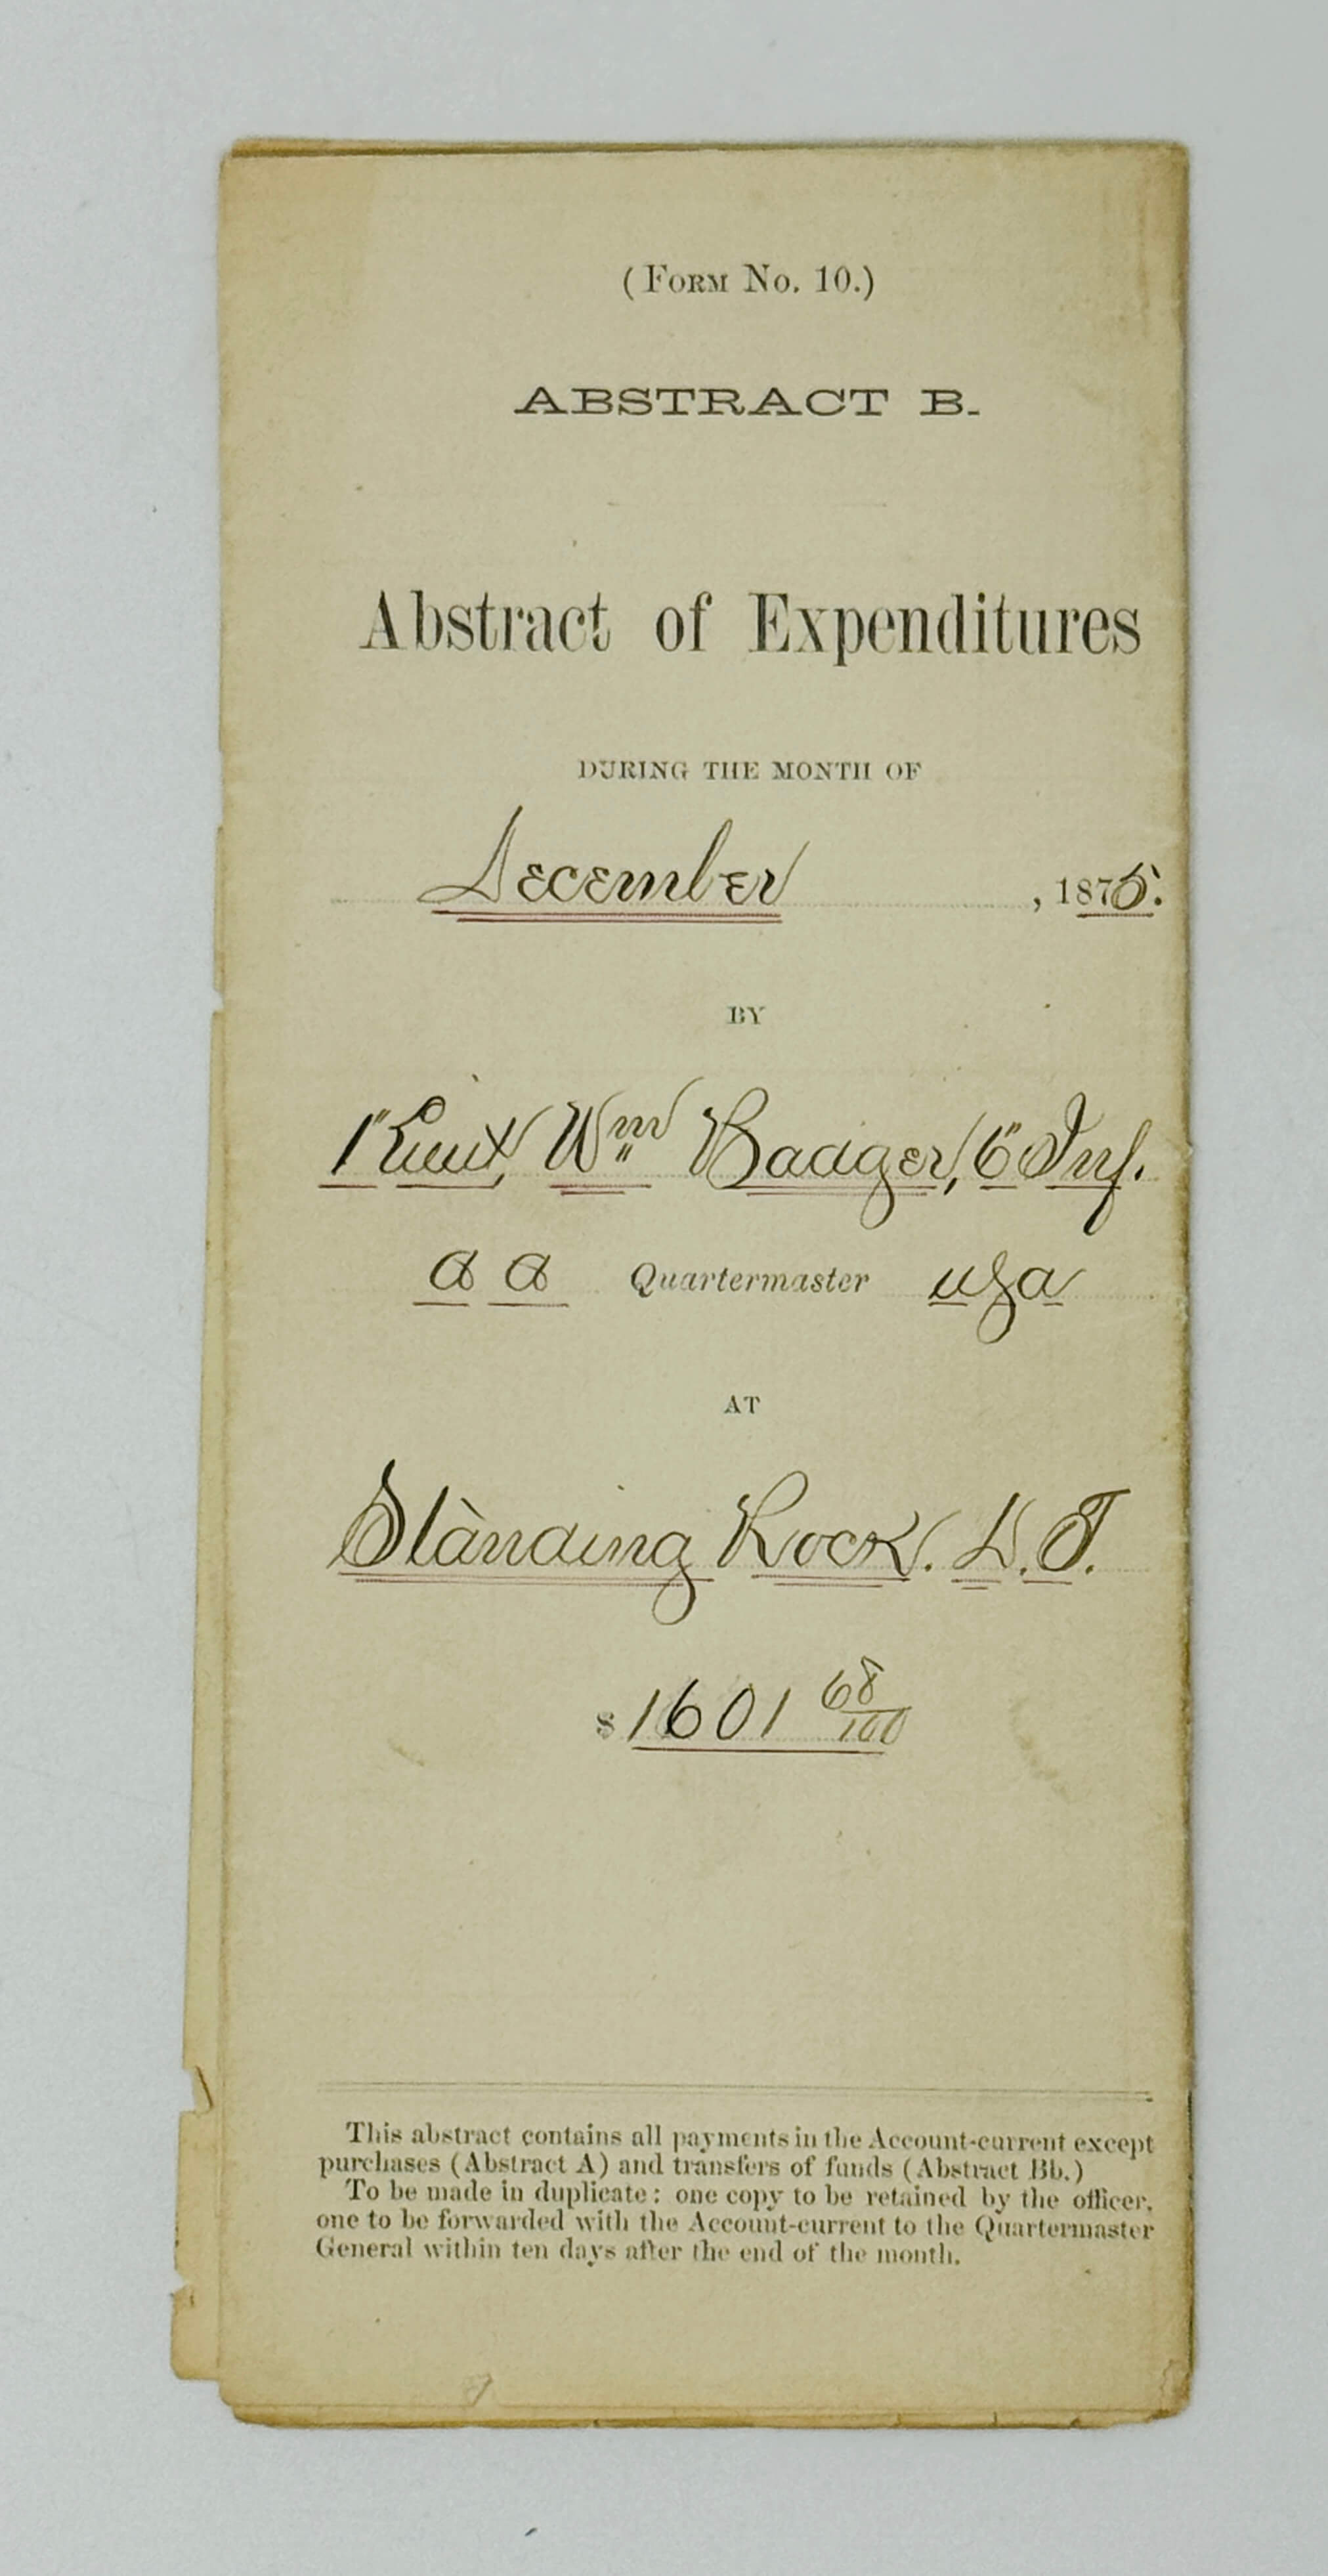 (FORM No. 10.)
ABSTRACT B.
Abstract of Expenditures
DURING THE MONTH OF
December, 1875.
BY
1" Lieut, Wm Badger, 6" Inf.
A A Quartermaster USA
AT
Standing Rock. D.T.
$1601 68/100
This abstract contains all payments in the Account-current except
purchases (Abstract A) and transfers of funds (Abstract Bb.)
To be made in duplicate: one copy to be retained by the officer,
one to be forwarded with the Account-current to the Quartermaster
General within ten days after the end of the month.